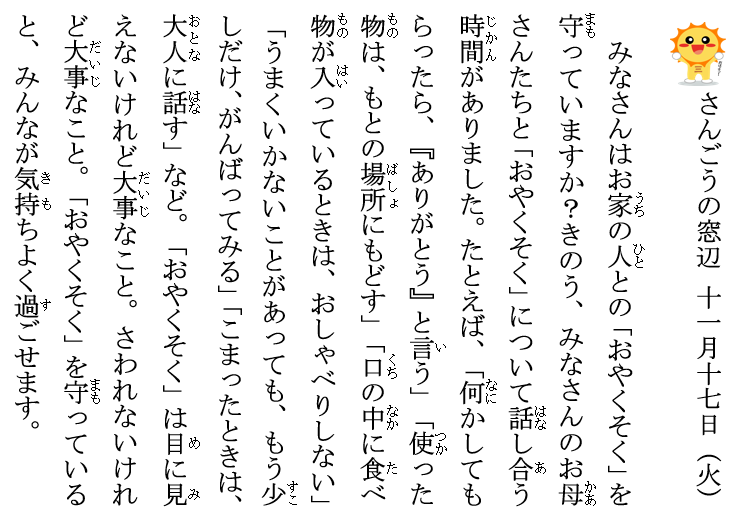 さんごうの窓辺 十一月十七日（火）
みなさんはお家の人との「おやくそく」を
守っていますか？きのう、みなさんのお母
さんたちと「おやくそく」について話し合う
時間がありました。たとえば、「何かしても
らったら、『ありがとう』と言う」「使った
物は、もとの場所にもどす」「口の中に食べ
物が入っているときは、おしゃべりしない」
「うまくいかないことがあっても、もう少
しだけ、がんばってみる」「こまったときは、
大人に話す」など。「おやくそく」は目に見
えないけれど大事なこと。さわれないけれ
ど大事なこと。「おやくそく」を守っている
と、みんなが気持ちよく過ごせます。